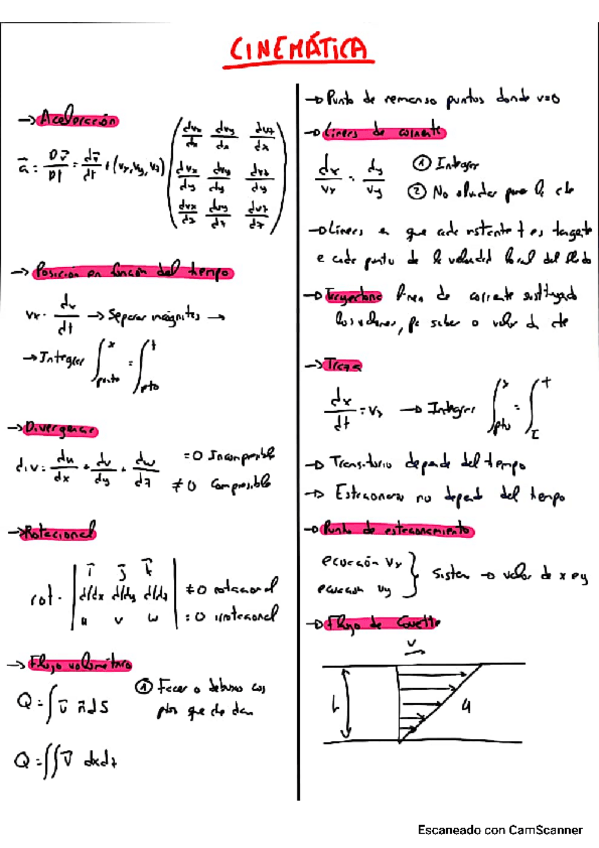 CINEMÁTICA
→ Aceleración
a⃗ = Dv⃗/Dt = dv⃗/dt + (vx, vy, vz) (dvx/dx dvy/dx dvz/dx
dvx/dy dvy/dy dvz/dy
dvx/dz dvy/dz dvz/dz)
→ Posición en función del tiempo
vx = dx/dt → Separar incógnitas →
→ Integrar ∫punto^x = ∫pto^t
→ Divergencia
div = du/dx + dv/dy + dw/dz = 0 Incompresible
≠ 0 Compresible
→ Rotacional
rot = | i⃗ j⃗ k⃗ |
| d/dx d/dy d/dz | ≠ 0 rotacional
| u v w | = 0 irrotacional
→ Flujo volumétrico
Q = ∫ v⃗ n⃗ dS ①
que de dan
Q = ∫∫ v⃗ dxdz
→ Punto de remanso puntos donde v=0
→ Líneas de corriente
dx/vx = dy/vy ① Integrar
② No olvidar poner la cte
→ Líneas en que cada instante t es tangente
a cada punto de la velocidad local del fluido
→ Trayectoria línea de corriente sustituyendo
los valores, pa saber o valor da cte
→ Traza
dx/dt = vx → Integrar ∫pto^x = ∫τ^t
→ Transitorio depende del tiempo
→ Estacionario no depende del tiempo
→ Punto de estancamiento
ecuación vx
ecuación vy } Sistema → valor de x e y
→ Flujo de Couette
v
h
u
Escaneado con CamScanner